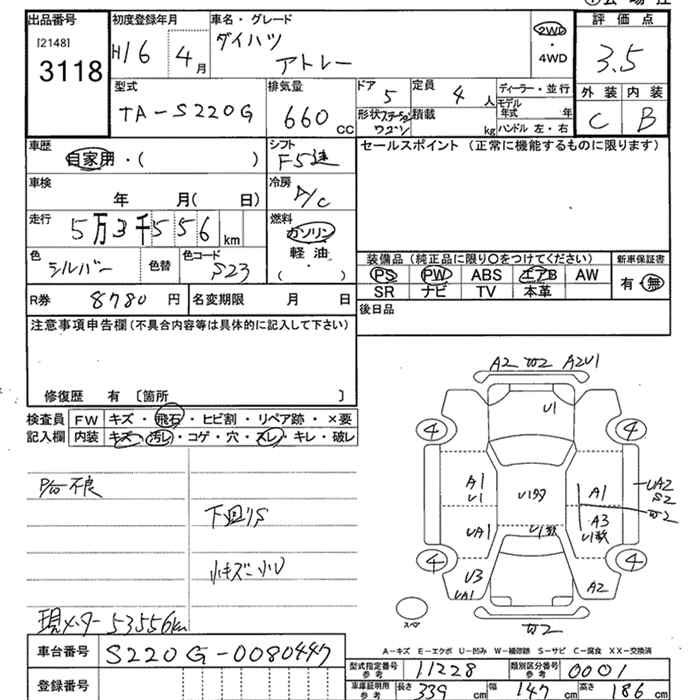 出品番号
[2148]
3118
初度登録年月
H16 4月
車名・グレード
ダイハツ
アトレー
2WD
・
4WD
評価点
3.5
外装 内装
C B
型式
TA-S220G
排気量
660 cc
ドア 5
定員 4 人
形状 ステーションワゴン
積載 kg
ディーラー・並行
モデル年式 年
ハンドル 左・右
車歴
自家用・( )
シフト
F5速
車検
年 月( 日)
冷房
A/C
走行
5万3千556 km
燃料
ガソリン
軽油
・
( )
色
シルバー
色替
色コード
S23
R券 8780 円
名変期限 月 日
セールスポイント (正常に機能するものに限ります)
装備品 (純正品に限り○をつけてください)
新車保証書
PS PW ABS エアB AW
有・無
SR ナビ TV 本革
後日品
注意事項申告欄 (不具合内容等は具体的に記入して下さい)
修復歴 有 〔箇所 〕
検査員記入欄
FW キズ・飛石・ヒビ割・リペア跡・×要
内装 キズ・汚レ・コゲ・穴・スレ・キレ・破レ
下廻りS
小キズ 小U
現メーター 53556km
A2 A2U1
U1
4 4
A1
U1
A1
UA2
S2
UA1
A3
4 4
U3
UA1
A2
スペア
A-キズ E-エクボ U-凹み W-補修跡 S-サビ C-腐食 XX-交換済
車台番号 S220G-0080447
登録番号
型式指定番号 参考 11228
類別区分番号 参考 0001
車庫証明用 参考 長さ 339 cm 幅 147 cm 高さ 186 cm